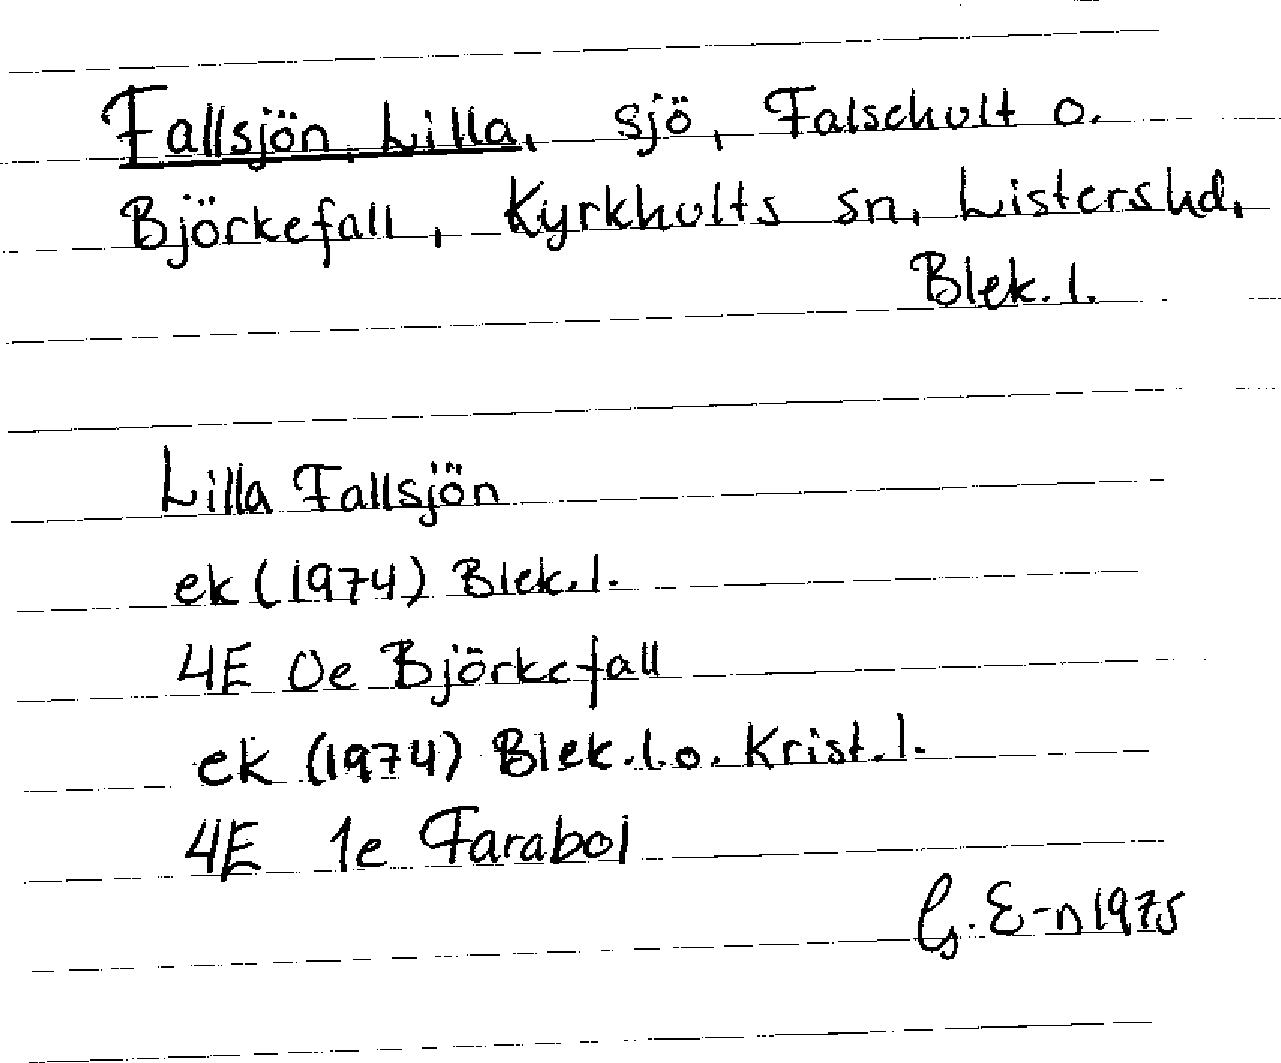 Fallsjön, Lilla, sjö, Falsehult o.
Björkefall, Kyrkhults sn, Listers hd,
Blek. l.
Lilla Fallsjön
ek (1974) Blek. l.
4E 0e Björkefall
ek (1974) Blek. l. o. Krist. l.
4E 1e Farabol
G. E-n 1975